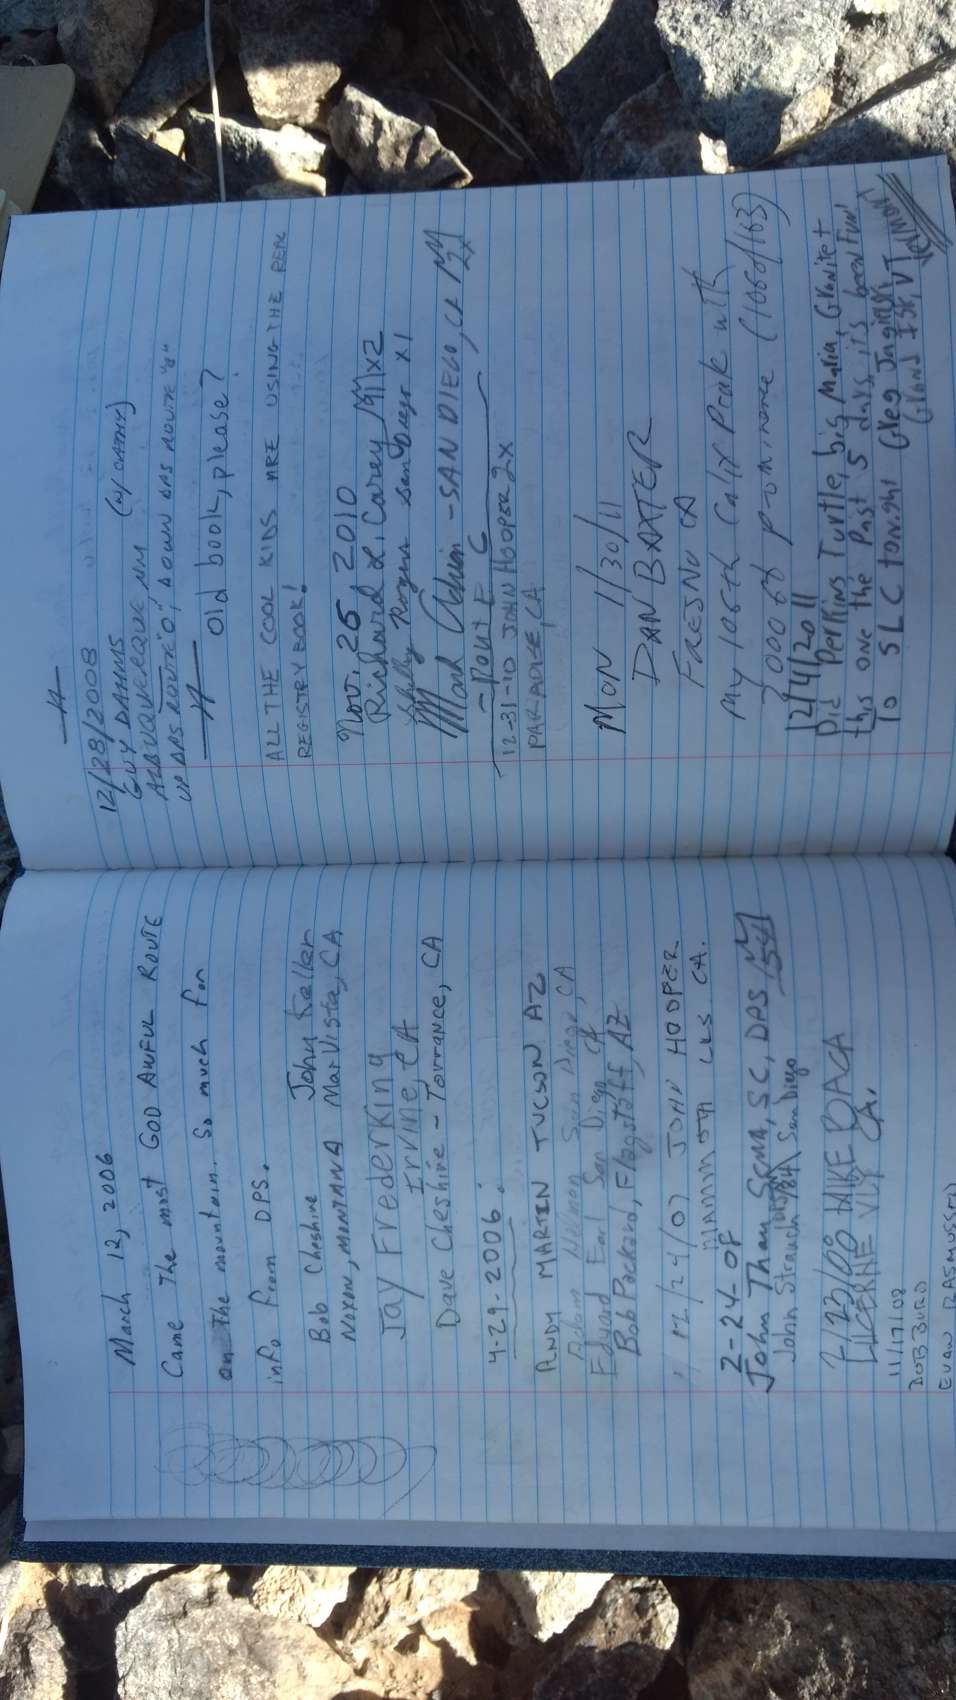 March 12, 2006
Came the most GOD AWFUL ROUTE
on the mountain. So much for
info from DPS.
Bob Cheshire John Keller
Noxon, MONTANA Mar Vista, CA
Jay Frederking
Irvine, CA
Dave Cheshire - Torrance, CA
4-29-2006:
ANDY MARTIN TUCSON AZ
Adam Helman San Diego, CA
Edward Earl San Diego, CA
Bob Packard, Flagstaff, AZ
12/24/07 JOHN HOOPER
MAMMOTH LKS CA.
2-24-08
John Thau SCMA, SC, DPS
John Strauch San Diego
LUCERNE VLY CA.
11/17/08
BOB BURD
EVAN RASMUSSEN
12/28/2008
GUY DAHMS (w/ CATHY)
ALBUQUERQUE NM
UP DPS ROUTE "O", DOWN DPS ROUTE
Old book, please?
ALL THE COOL KIDS ARE USING THE REAL
REGISTRY BOOK!
Nov. 25 2010
Richard L. Carey M x2
Shelly Rogers San Diego x1
Mark Adrian - SAN DIEGO, CA
2x
- Route C
12-31-10 JOHN HOOPER 2x
PARADISE, CA
MON 1/30/11
DAN BAXTER
FRESNO CA
My 106th Calif Peak with
2000' of prominence (106 of 163)
12/14/2011
Did Perkins, Turtle, Big Maria, Granite +
this one the past 5 days, it's been fun!
To SLC tonight Greg
Grand Isle, VT